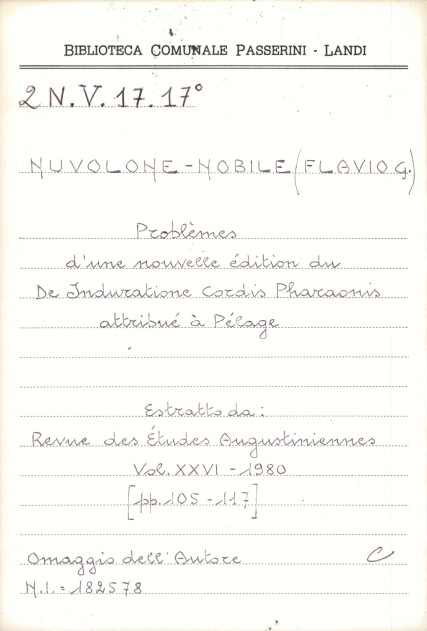 BIBLIOTECA COMUNALE PASSERINI - LANDI
2 N.V. 17.17°
NUVOLONE-NOBILE (FLAVIO G.)
Problèmes
d'une nouvelle édition du
De Induratione Cordis Pharaonis
attribué à Pélage
Estratto da:
Revue des Études Augustiniennes
Vol. XXVI - 1980
[pp. 105 - 117]
Omaggio dell'Autore C
N.I. = 182578